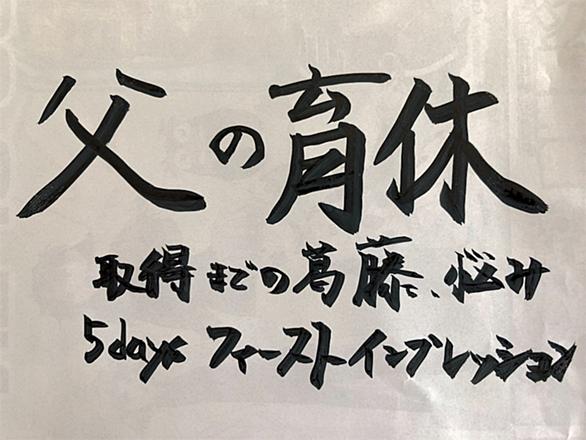 父の育休
取得までの葛藤、悩み
5days ファーストインプレッション